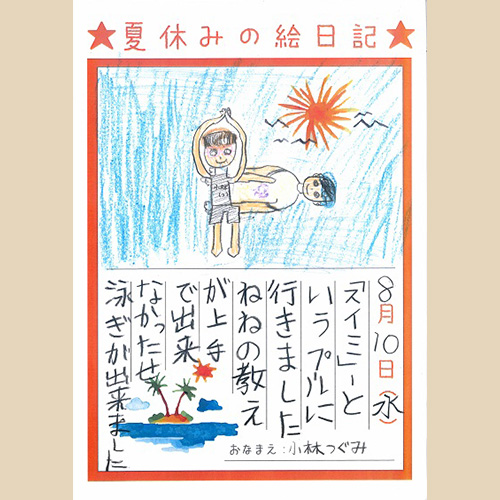 ★夏休みの絵日記★
8月10日(水)
「スイミ」ーと
いうプルに
行きました
ねねの教え
が上手
で出来
なかったせ
泳ぎが出来ました
おなまえ:小林つぐみ